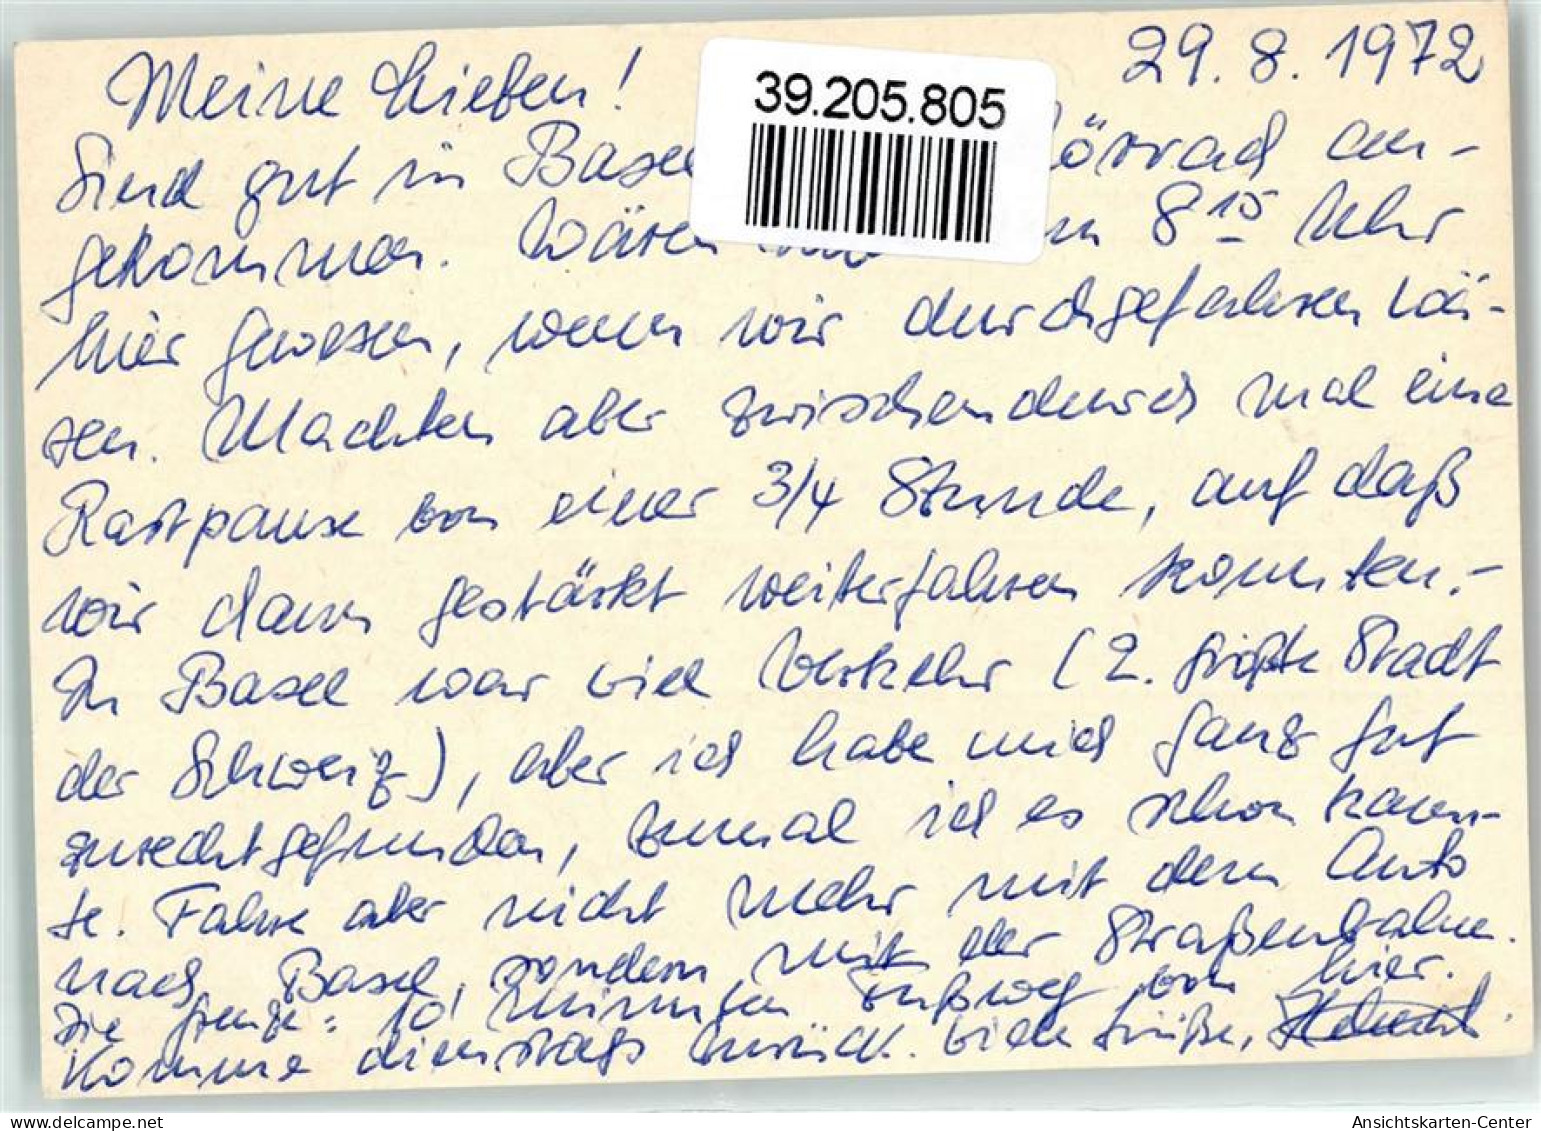 29.8.1972
Meine Lieben!
39.205.805
Sind gut in Basel örrach an-
gekommen. Wären um 8 15 Uhr
hier gewesen, wenn wir durchgefahren wä-
ren. Machten aber zwischendurch mal eine
Rastpause von einer 3/4 Stunde, auf daß
wir dann gestärkt weiterfahren konnten.-
In Basel war viel Verkehr (2. größte Stadt
der Schweiz), aber ich habe mich ganz gut
zurechtgefunden, zumal ich es schon kann-
te. Fahre aber nicht mehr mit dem Auto
nach Basel, sondern mit der Straßenbahn.
Die Grenze: 10 Minuten Fußweg von hier.
Komme dienstags zurück. Viele Grüße, Helmut
delcampe.net
Ansichtskarten-Center